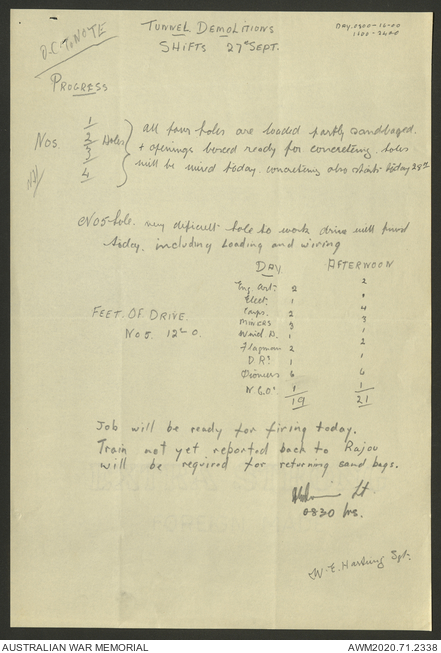 O.C. To NOTE
TUNNEL DEMOLITIONS
SHIFTS 27th SEPT.
DAY.
PROGRESS
Nos
1
2
3
4
Holes
all four holes are loaded partly sandbagged
+ openings boxed ready for concreting. holes
will be wired today. concreting also starts today 28th
No5 hole. very difficult hole to work drive will finish
today, including loading and wiring
DAY. AFTERNOON
Eng. art. 2 2
Elect. 1
FEET. OF DRIVE.
No 5. 12'-0.
4
Miners 3 3
1
Flagman 2 2
D.Rs 1 1
Pioneers 6
N.C.O. 1 1
19 21
Job will be ready for firing today.
Train not yet reported back to Rajou
will be required for returning sand bags.
Lt
0830 hrs.
W. E. Spr.
AUSTRALIAN WAR MEMORIAL AWM2020.71.2338